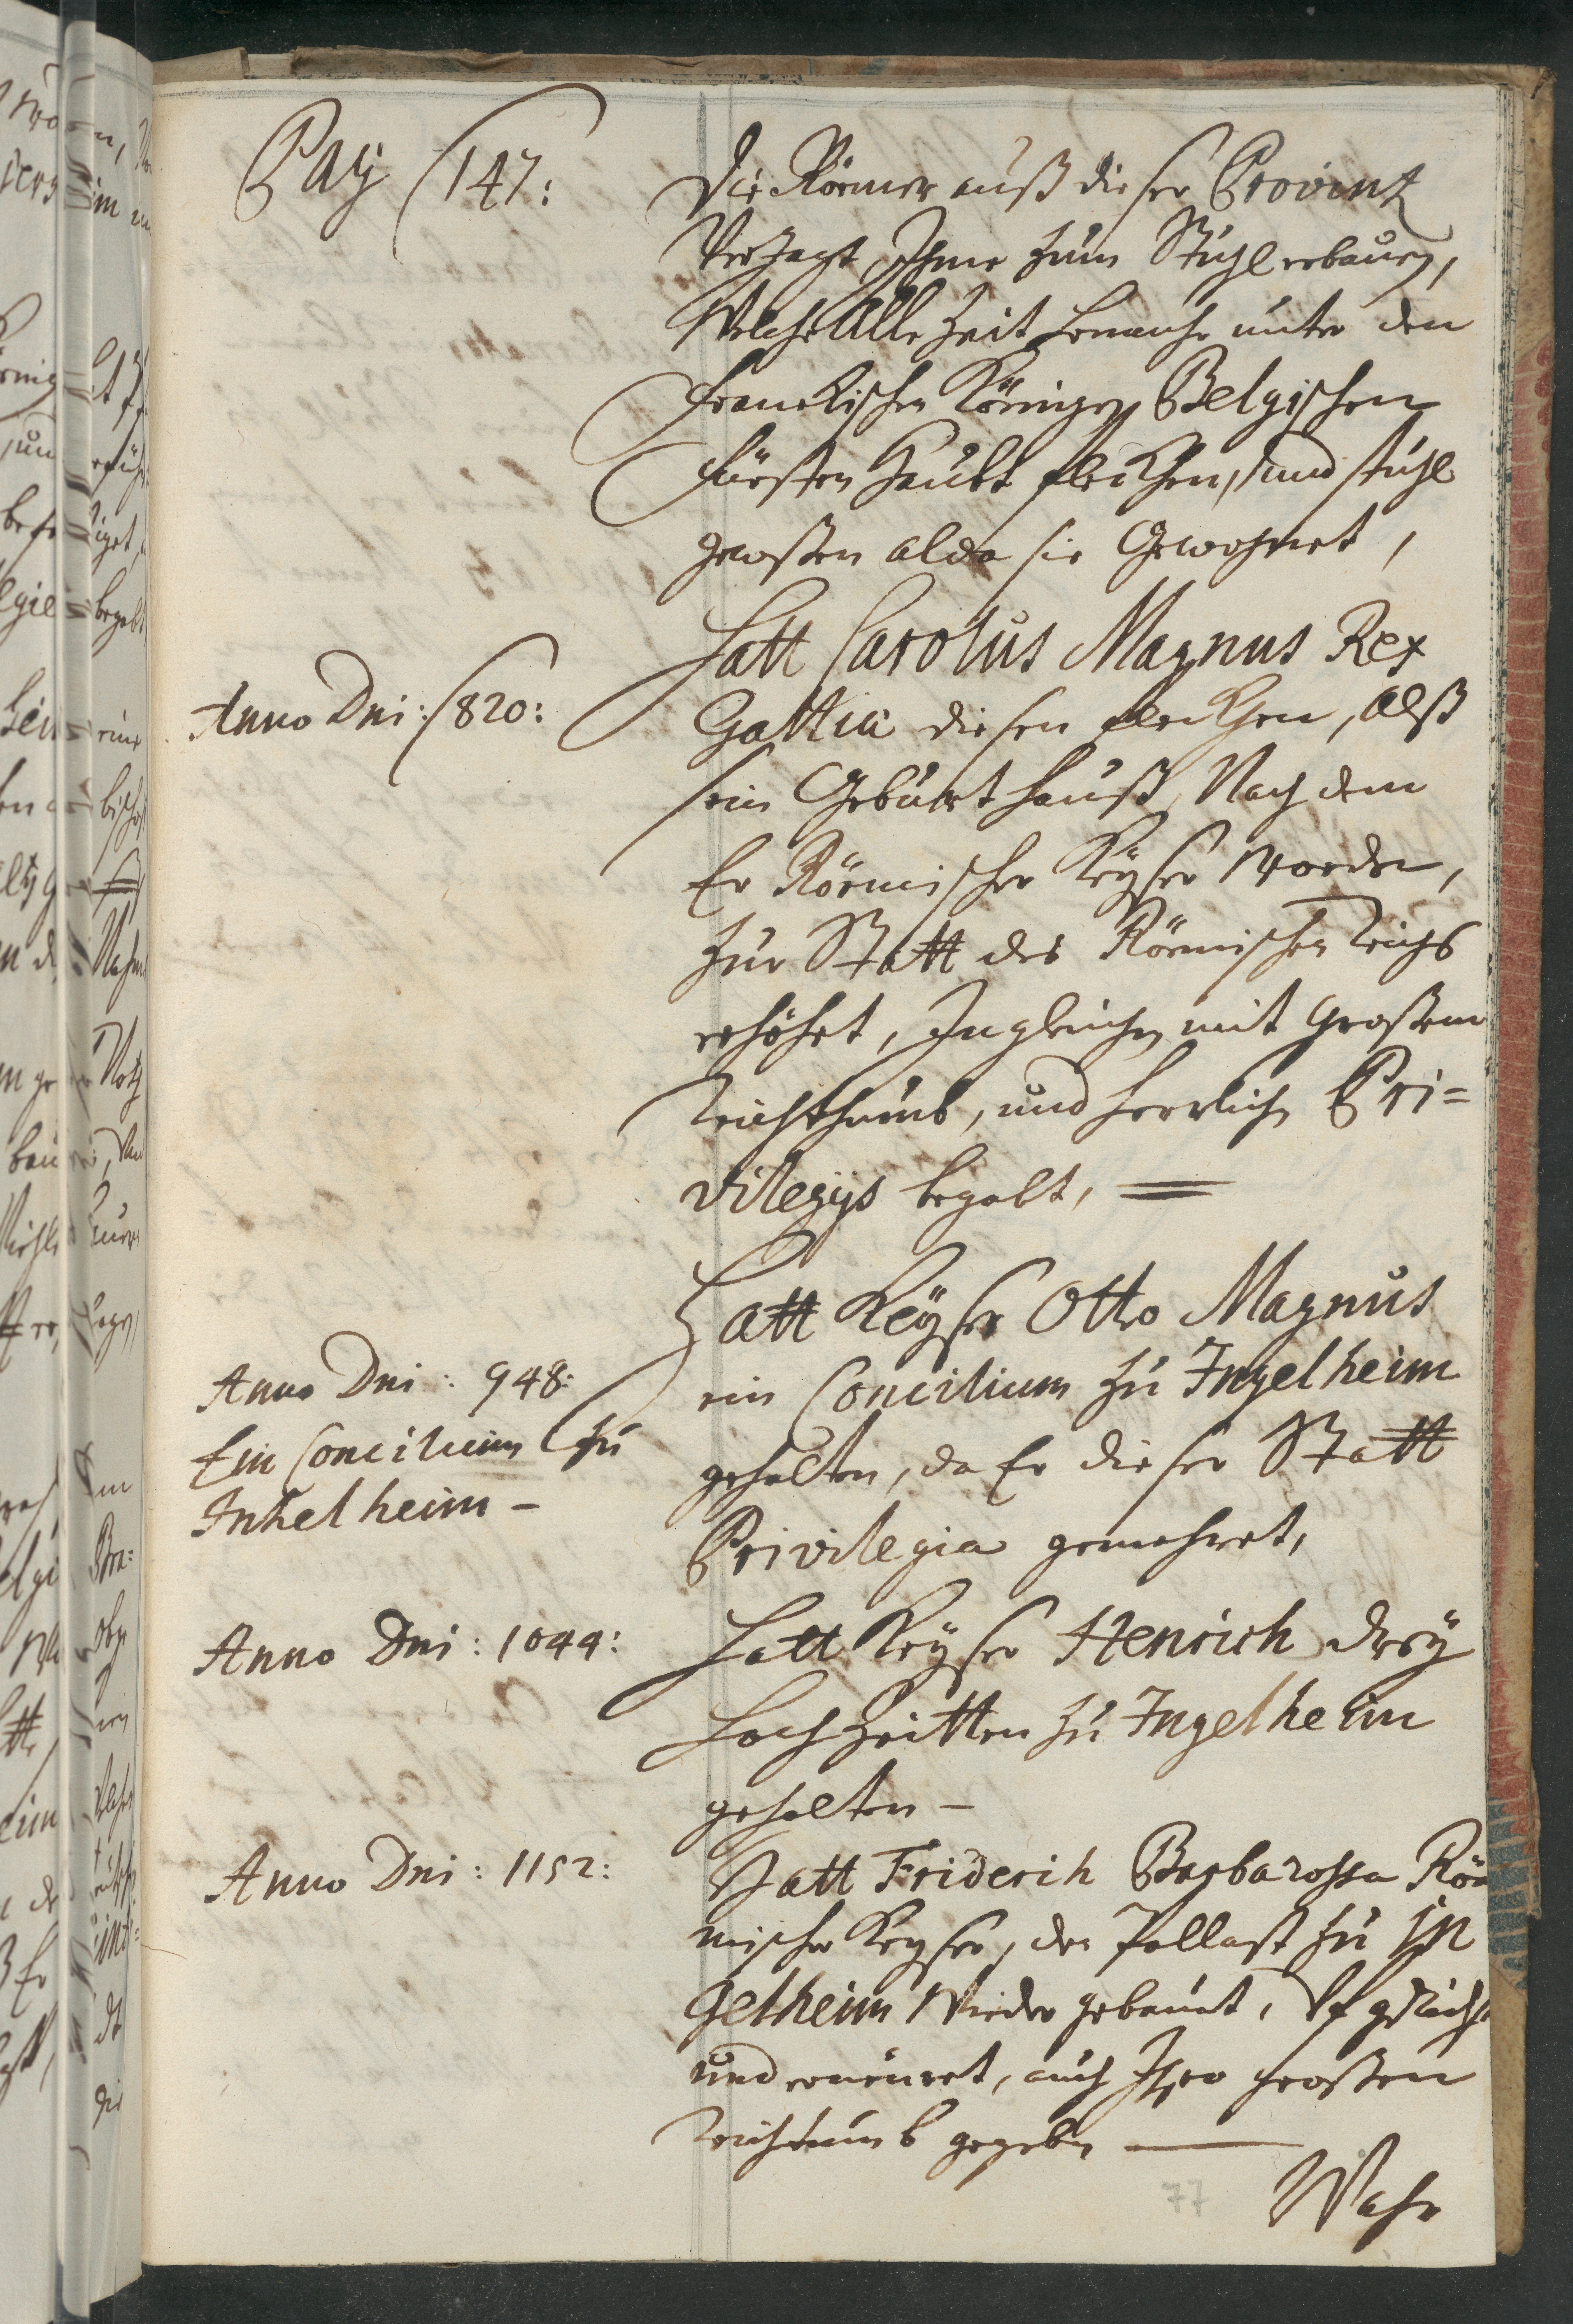 Pag 147:
Die Römer auß dieser Provintz
Verjagt, Ihme zum Stuhl erbauen,
Welche alle Zeit hernach unter den
Franckischen Königen Belgischen
Fürsten Haubt flecken, und stuhl
gewesen alda sie Gewohnet,
Anno Dni: 820:
Hatt Carolus Magnus Rex
Galliæ diesen flecken, Alß
sein Geburt Hauß, Nach dem
Er Römischer Keÿser worden,
zur Statt des Römischen Reichs
erhöhet, Ingleichen mit Großem
Reichthumb, und Herrlichen Pri=
vilegÿs begabt,
Anno Dni: 948:
Ein Concilium zu
Inhelheim –
Hatt Keÿser Otto Magnus
ein Concilium zu Ingelheim
gehalten, da Er dieser Statt
Privilegia gemehret,
Anno Dni: 1044:
Hatt Keÿser Henrich dreÿ
Hochzeitten zu Ingelheim
gehalten –
Anno Dni: 1152:
Hatt Friderich Barbarossa Rö
mischer Keyser, den Pallast zu In
gelheim Wieder gebauet,
und erneuret, auch Ihro grossen
Reichtumb gegeben
77
Wahr